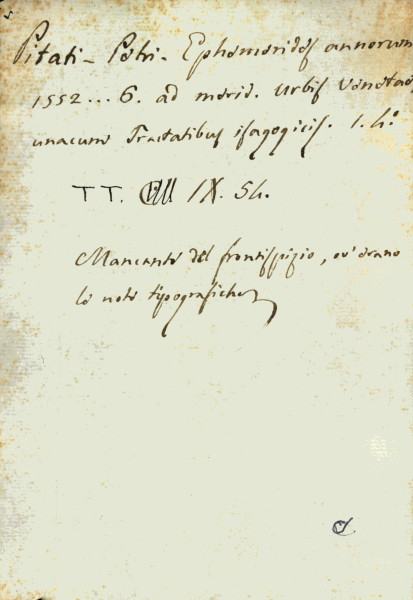 5
Pitati - Petri - Ephemerides annorum
1552 ... 6. ad merid. Urbis Venetae
unacum Tractatibus isagogicis. 1. 4.º
TT. IX. 54.
Mancante del frontispizio, ov'erano
le note tipografiche